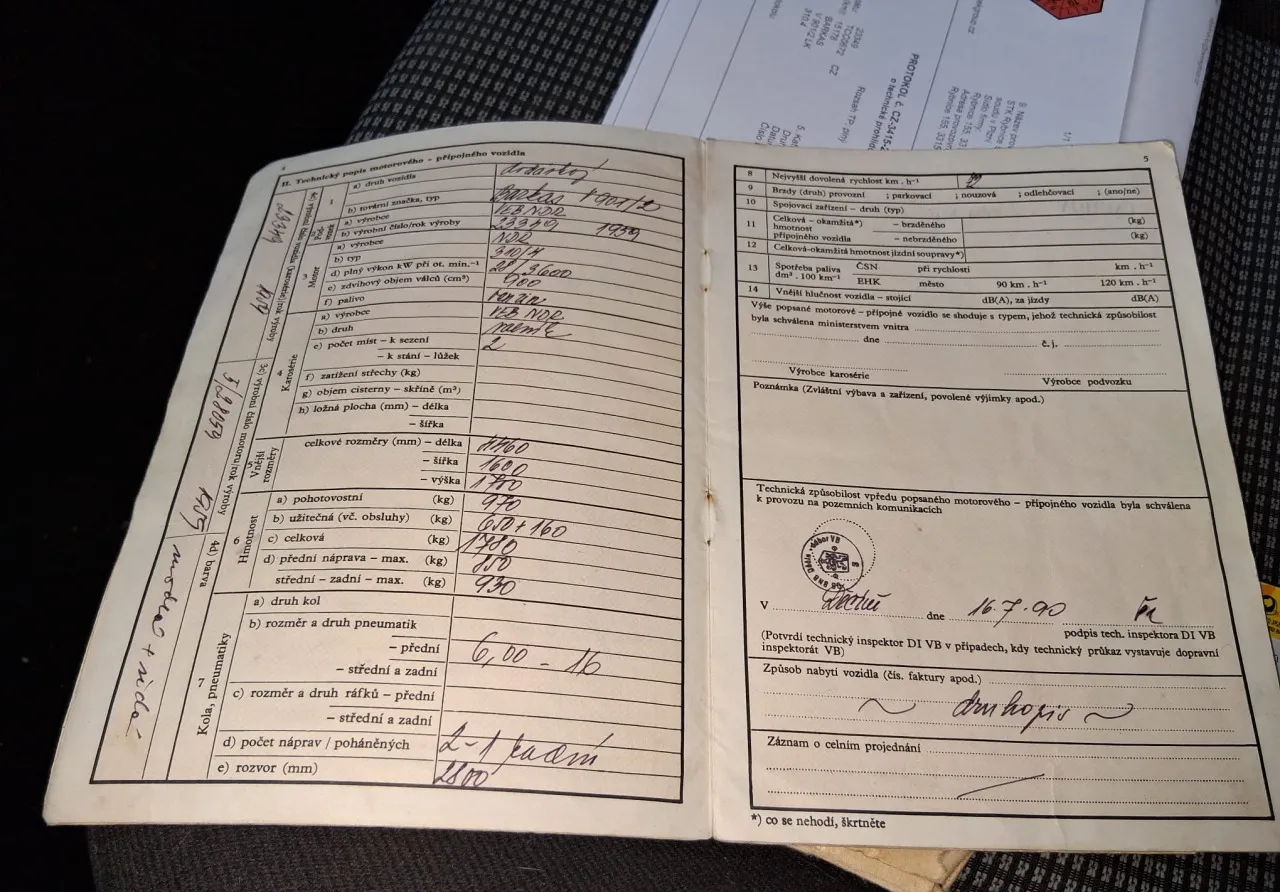 4
II. Technický popis motorového – přípojného vozidla
1 a) druh vozidla dodávkový
b) tovární značka, typ Barkas V 901/2
2 Podvozek a) výrobce VEB NDR
b) výrobní číslo/rok výroby 23349 1959
3 Motor a) výrobce NDR
b) typ 310/4
d) plný výkon kW při ot. min.⁻¹ 28/3600
e) zdvihový objem válců (cm³) 900
f) palivo benzin
4 Karosérie a) výrobce VEB NDR
b) druh
e) počet míst – k sezení 2
– k stání – lůžek
f) zatížení střechy (kg)
g) objem cisterny – skříně (m³)
h) ložná plocha (mm) – délka
– šířka
5 Vnější rozměry celkové rozměry (mm) – délka 4460
– šířka 1600
– výška 1780
6 Hmotnost a) pohotovostní (kg) 970
b) užitečná (vč. obsluhy) (kg) 650 + 160
c) celková (kg) 1780
d) přední náprava – max. (kg) 850
střední – zadní – max. (kg) 930
7 Kola, pneumatiky a) druh kol
b) rozměr a druh pneumatik
– přední 6,00 – 16
– střední a zadní
c) rozměr a druh ráfků – přední
– střední a zadní
d) počet náprav / poháněných 2 – 1
e) rozvor (mm) 2800
23349 1959
3c) výrobní číslo motoru/rok výroby
1959
4d) barva
modrá +
5
8 Nejvyšší dovolená rychlost km . h⁻¹
9 Brzdy (druh) provozní ; parkovací ; nouzová ; odlehčovací ; (ano/ne)
10 Spojovací zařízení – druh (typ)
11 Celková – okamžitá*) – brzděného (kg)
hmotnost
přípojného vozidla – nebrzděného (kg)
12 Celková-okamžitá hmotnost jízdní soupravy*)
13 Spotřeba paliva ČSN při rychlosti km . h⁻¹
dm³ . 100 km⁻¹ EHK město 90 km . h⁻¹ 120 km . h⁻¹
14 Vnější hlučnost vozidla – stojící dB(A), za jízdy dB(A)
Výše popsané motorové – přípojné vozidlo se shoduje s typem, jehož technická způsobilost
byla schválena ministerstvem vnitra
dne č. j.
Výrobce karosérie Výrobce podvozku
Poznámka (Zvláštní výbava a zařízení, povolené výjimky apod.)
Technická způsobilost vpředu popsaného motorového – přípojného vozidla byla schválena
k provozu na pozemních komunikacích
V Děčíně dne 16.7.90
podpis tech. inspektora DI VB
(Potvrdí technický inspektor DI VB v případech, kdy technický průkaz vystavuje dopravní
inspektorát VB)
Způsob nabytí vozidla (čís. faktury apod.)
~ druhopis ~
Záznam o celním projednání
*) co se nehodí, škrtněte
PROTOKOL č. CZ-3415-2
o technické prohlídce
Rozsah TP: plný
23349
15178
BARKAS
V 901/2 LK
310 4
CZ
1/1